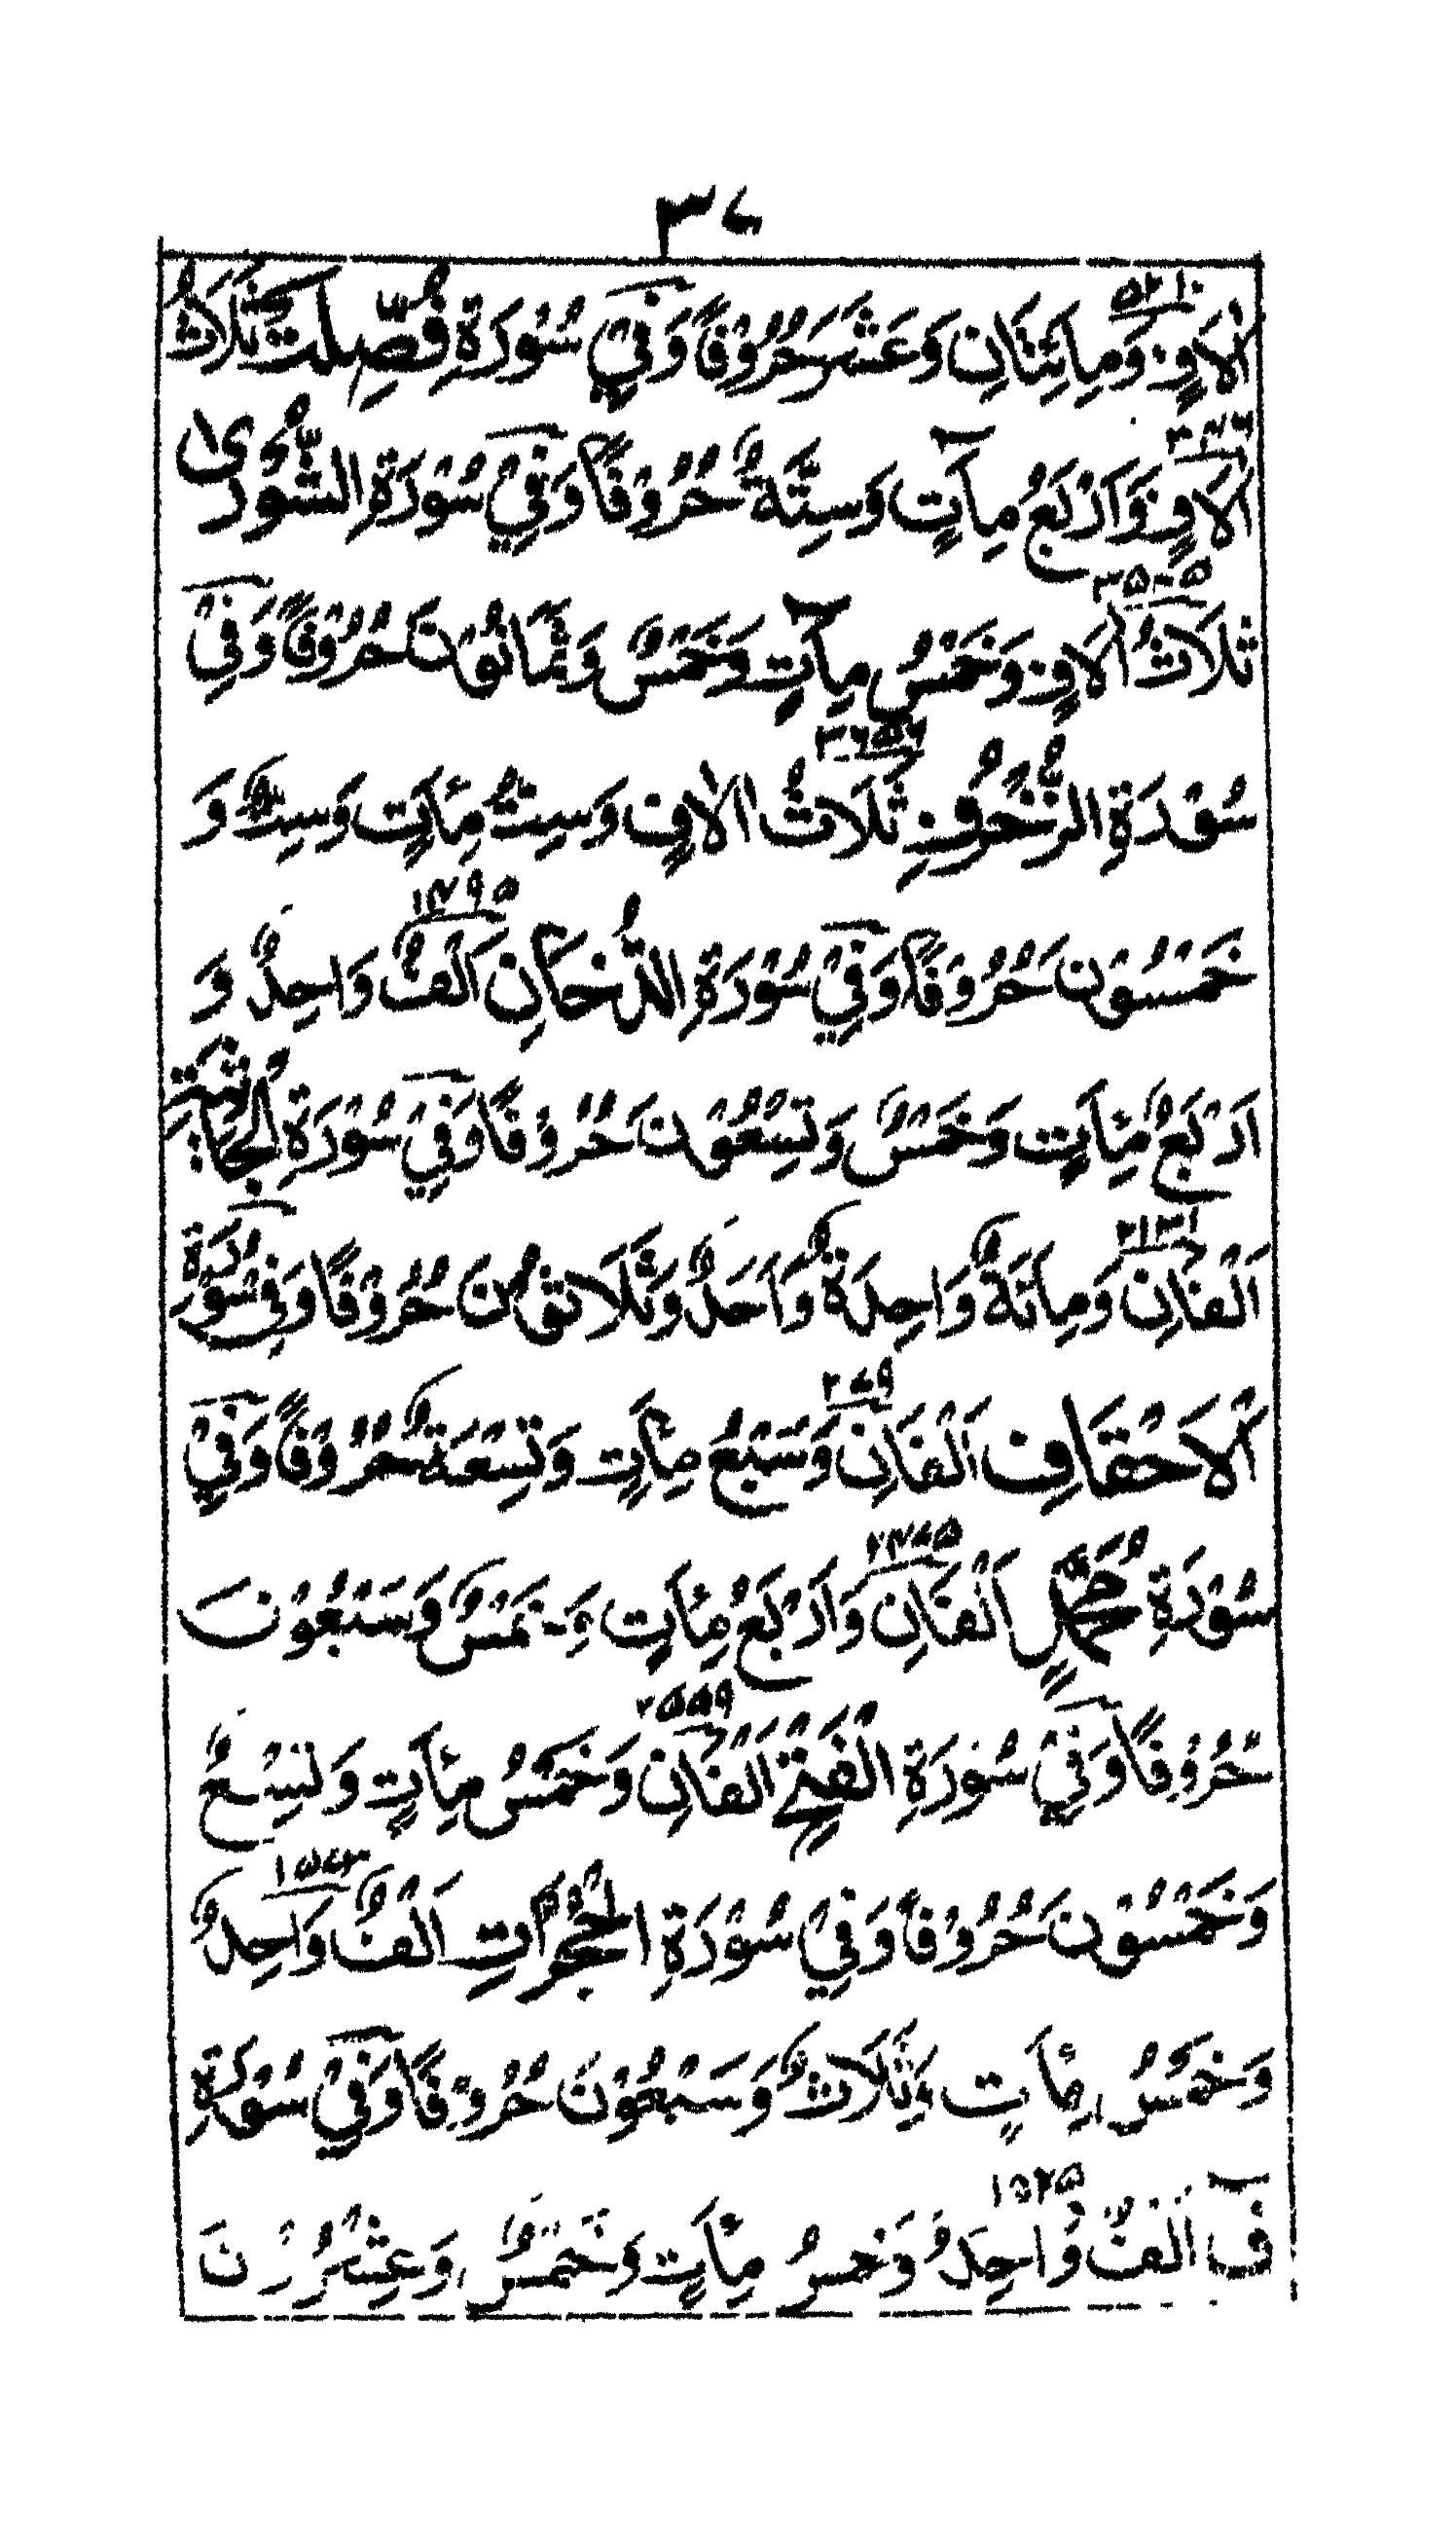 ٣٧
٥٢١٠
اٰلَافٍ وَمِائَتَانِ وَعَشَرَ حُرُوْفًا وَفِيْ سُوْرَةِ فُصِّلَتْ ثَلَاثُ
اٰلَافٍ وَاَرْبَعُ مِآتٍ وَسِتَّةٌ حُرُوْفًا وَفِيْ سُوْرَةِ الشُّوْرٰى
ثَلَاثُ اٰلَافٍ وَخَمْسُ مِآتٍ وَخَمْسٌ وَثَمَانُوْنَ حُرُوْفًا وَفِيْ
٣٦٥٦
سُوْرَةِ الزُّخْرُفِ ثَلَاثُ اٰلَافٍ وَسِتُّ مِئَاتٍ وَسِتٌّ وَ
١٤٩٥
خَمْسُوْنَ حُرُوْفًا وَفِيْ سُوْرَةِ الدُّخَانِ اَلْفٌ وَاحِدٌ وَ
اَرْبَعُ مِئَاتٍ وَخَمْسٌ وَتِسْعُوْنَ حُرُوْفًا وَفِيْ سُوْرَةِ الْجَاثِيَةِ
٢١٣١
اَلْفَانِ وَمِائَةٌ وَاحِدَةٌ وَاَحَدٌ وَثَلَاثُوْنَ حُرُوْفًا وَفِيْ سُوْرَةِ
٢٧٩
الْاَحْقَافِ اَلْفَانِ وَسَبْعُ مِئَاتٍ وَتِسْعَةٌ حُرُوْفًا وَفِيْ
٢٤٧٥
سُوْرَةِ مُحَمَّدٍ اَلْفَانِ وَاَرْبَعُ مِئَاتٍ وَخَمْسٌ وَسَبْعُوْنَ
٢٥٥٩
حُرُوْفًا وَفِيْ سُوْرَةِ الْفَتْحِ اَلْفَانِ وَخَمْسُ مِئَاتٍ وَتِسْعٌ
١٥٧٣
وَخَمْسُوْنَ حُرُوْفًا وَفِيْ سُوْرَةِ الْحُجُرَاتِ اَلْفٌ وَاحِدٌ
وَخَمْسُ مِئَاتٍ وَثَلَاثٌ وَسَبْعُوْنَ حُرُوْفًا وَفِيْ سُوْرَةِ
١٥٢٥
قٓ اَلْفٌ وَاحِدٌ وَخَمْسُ مِئَاتٍ وَخَمْسٌ وَعِشْرُوْنَ